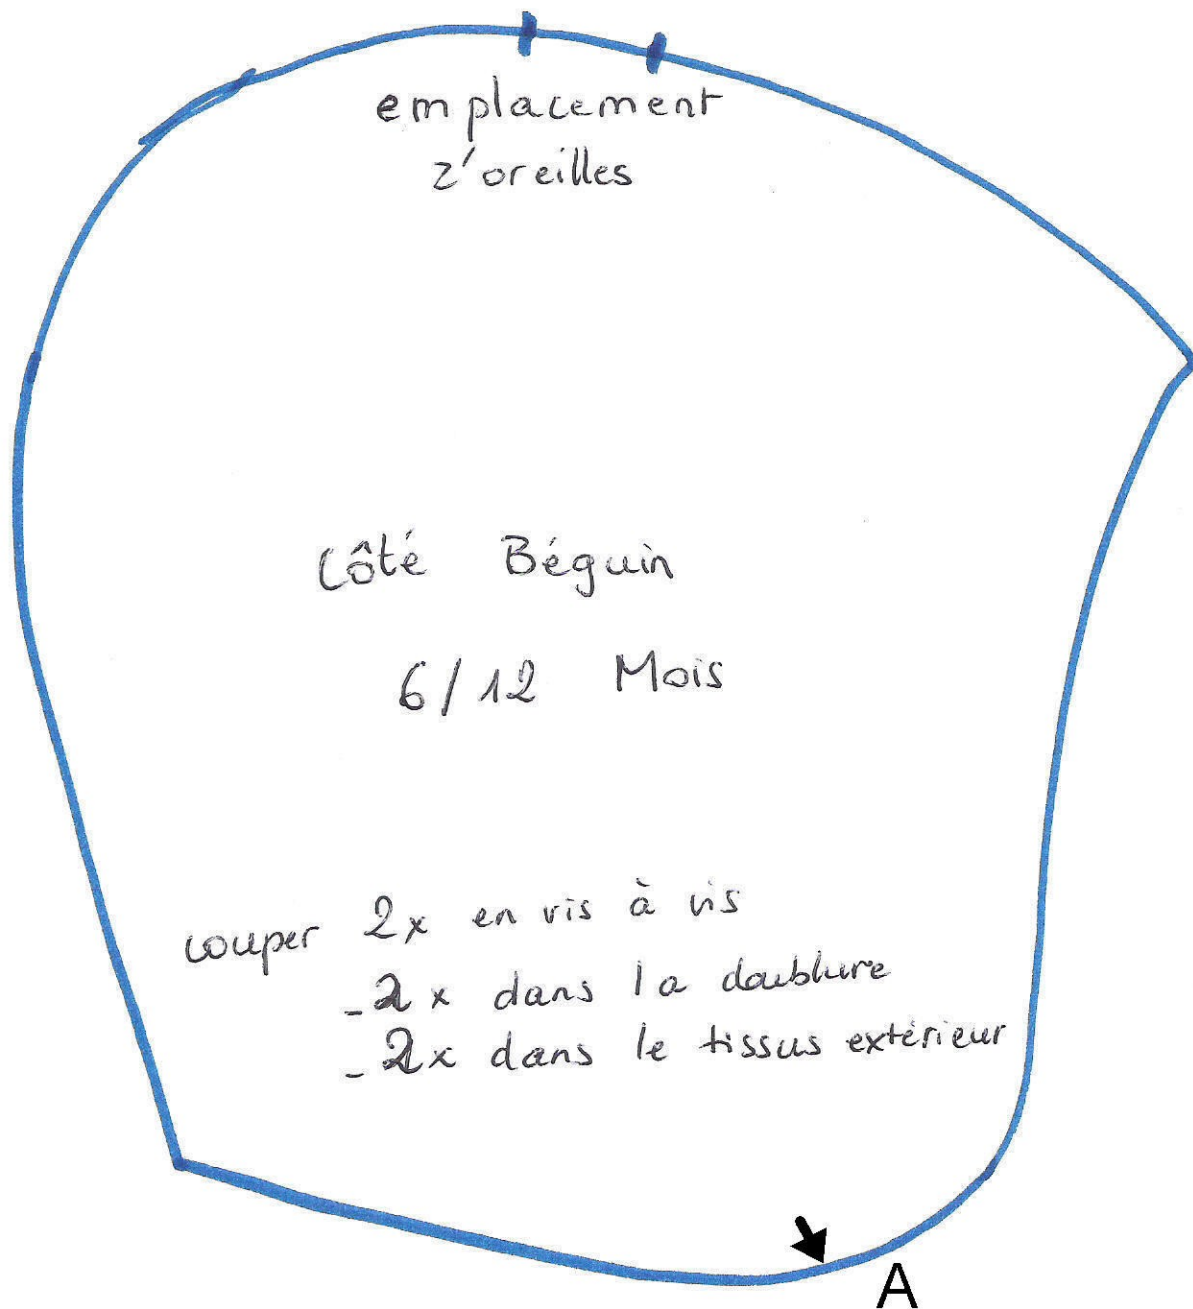 emplacement
z'oreilles
Côté Béguin
6/12 Mois
couper 2x en vis à vis
- 2x dans la doublure
- 2x dans le tissus extérieur
A